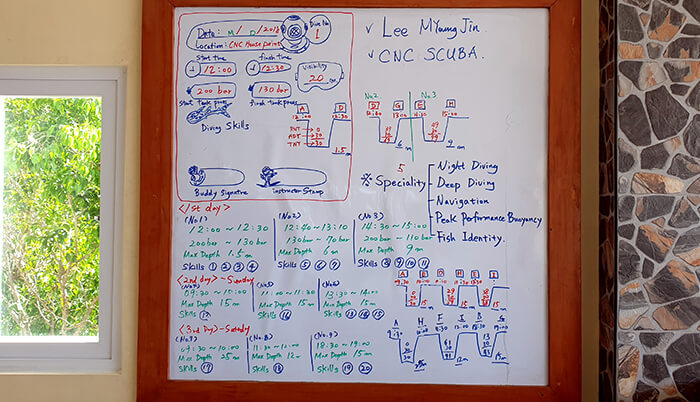 Date: M/ D/2018
Dive No
1
Location: CNC House point
start time
finish time
12:00
12:30
Visibility
20 m
200 bar
130 bar
start tank press
finish tank press
Diving Skills
A
D
12:00
12:30
RNT → 0
ADT → 30
TNT → 30
1.5 m
Buddy Signatre
Instructor Stamp
✓ Lee Myoung Jin
✓ CNC SCUBA
No2.
No3.
D
G
13:10
H
15:00
6 m
9 m
5
※ Speciality
Night Diving
Deep Diving
Navigation
Peak Performance Buoyancy
Fish Identity.
<1st day>
(No1)
12:00 ~ 12:30
200 bar ~ 130 bar
Max Depth 1.5 m
Skills ① ② ③ ④
(No2)
12:40 ~ 13:10
130 bar ~ 90 bar
Max Depth 6 m
Skills ⑤ ⑥ ⑦
(No3)
14:30 ~ 15:00
200 bar ~ 110 bar
Max Depth 9 m
Skills ⑧ ⑨ ⑩ ⑪
<2nd day> - Sunday
09:30 ~ 10:00
Max Depth 15 m
Skills ⑫
11:00 ~ 11:30
Max Depth 15 m
Skills
(No6)
13:30 ~ 14:00
Depth 15 m
Skills
15 m
15 m
15 m
<3rd Day>
(No7)
09:30 ~ 10:00
Depth 25 m
Skills ⑰
(No.8)
11:30 ~ 12:00
Max Depth 12 m
Skills ⑱
(No.9)
18:30 ~ 19:00
Max Depth 15 m
Skills ⑲ ⑳
12m
15m